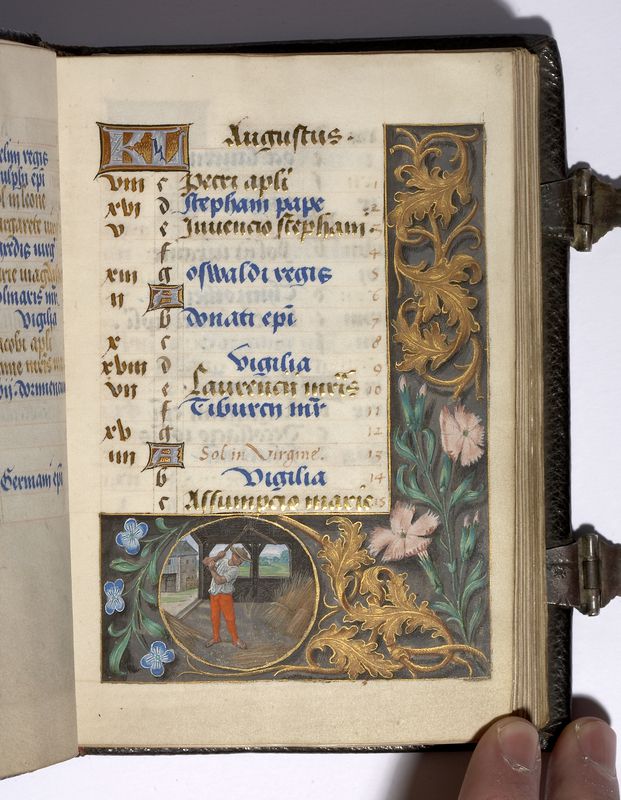 8
KL Augustus
viii c Petri apli 1
xvi d Stephani pape 2
v e Invencio stephani 3
f 4
xiii g oswaldi regis 5
ii A 6
b donati epi 7
x c 8
xviii d Vigilia 9
vii e Laurencii mris 10
f Tiburcii mr 11
xv g 12
iiii A Sol in Virgine. 13
b Vigilia 14
c Assumpcio marie 15
regis
epi
sol in leone
Vigilia
iacobi apli
Germani epi